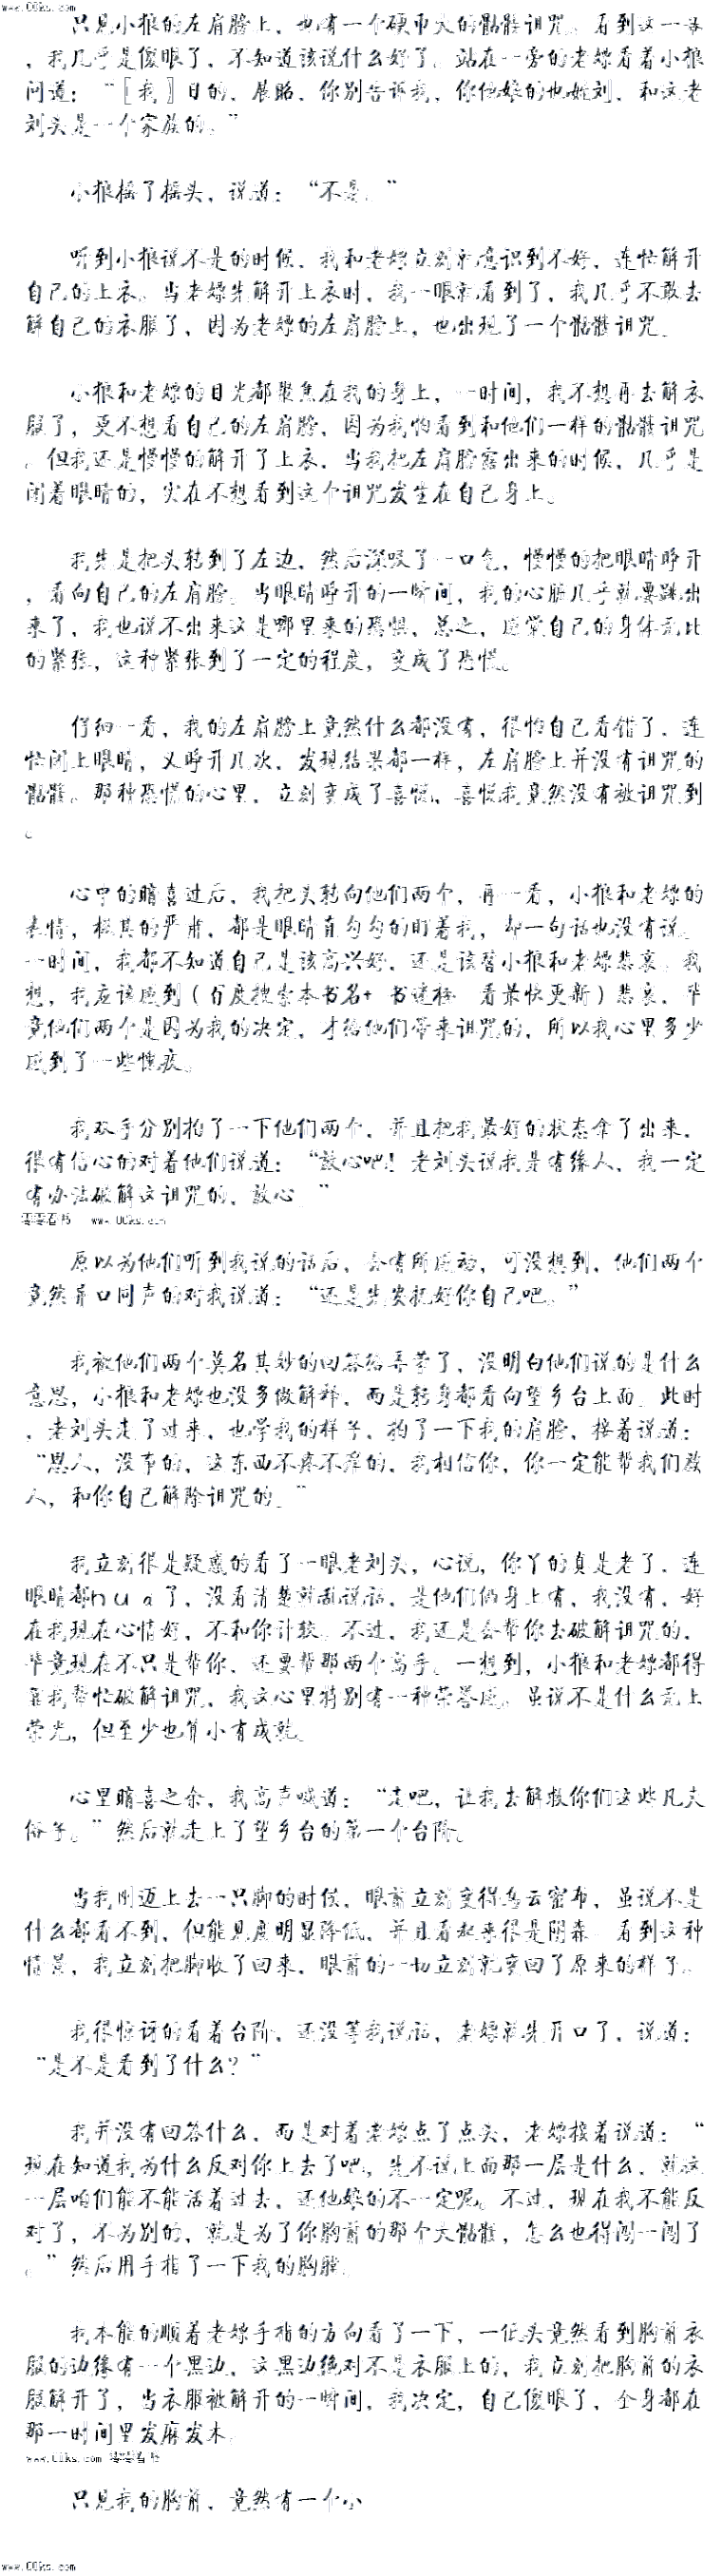 www.00ks.com
只见小狼的左肩膀上，也有一个硬币大的骷髅诅咒。看到这一幕
，我几乎是傻眼了，不知道该说什么好了。站在一旁的老嫖看着小狼
问道：“［我］日的，展昭，你别告诉我，你他娘的也姓刘，和这老
刘头是一个家族的。”
小狼摇了摇头，说道：“不是。”
听到小狼说不是的时候，我和老嫖立刻就意识到不好，连忙解开
自己的上衣。当老嫖先解开上衣时，我一眼就看到了，我几乎不敢去
解自己的衣服了，因为老嫖的左肩膀上，也出现了一个骷髅诅咒。
小狼和老嫖的目光都聚焦在我的身上，一时间，我不想再去解衣
服了，更不想看自己的左肩膀，因为我怕看到和他们一样的骷髅诅咒
。但我还是慢慢的解开了上衣，当我把左肩膀露出来的时候，几乎是
闭着眼睛的，实在不想看到这个诅咒发生在自己身上。
我先是把头转到了左边，然后深吸了一口气，慢慢的把眼睛睁开
，看向自己的左肩膀。当眼睛睁开的一瞬间，我的心脏几乎就要跳出
来了，我也说不出来这是哪里来的恐惧，总之，感觉自己的身体无比
的紧张，这种紧张到了一定的程度，变成了恐慌。
仔细一看，我的左肩膀上竟然什么都没有，很怕自己看错了，连
忙闭上眼睛，又睁开几次，发现结果都一样，左肩膀上并没有诅咒的
骷髅。那种恐慌的心里，立刻变成了喜悦，喜悦我竟然没有被诅咒到
。
心中的暗喜过后，我把头转向他们两个，再一看，小狼和老嫖的
表情，极其的严肃，都是眼睛直勾勾的盯着我，却一句话也没有说。
一时间，我都不知道自己是该高兴好，还是该替小狼和老嫖悲哀。我
想，我应该感到（百度搜索本书名+ 书谜楼 看最快更新）悲哀，毕
竟他们两个是因为我的决定，才给他们带来诅咒的，所以我心里多少
感到了一些愧疚。
我双手分别拍了一下他们两个，并且把我最好的状态拿了出来，
很有信心的对着他们说道：“放心吧！老刘头说我是有缘人，我一定
有办法破解这诅咒的，放心。”
零零看书 www.00ks.com
原以为他们听到我说的话后，会有所感动，可没想到，他们两个
竟然异口同声的对我说道：“还是先安抚好你自己吧。”
我被他们两个莫名其妙的回答给弄蒙了，没明白他们说的是什么
意思，小狼和老嫖也没多做解释，而是转身都看向望乡台上面。此时
，老刘头走了过来，也学我的样子，拍了一下我的肩膀，接着说道：
“恩人，没事的，这东西不疼不痒的，我相信你，你一定能帮我们族
人，和你自己解除诅咒的。”
我立刻很是疑惑的看了一眼老刘头，心说，你丫的真是老了，连
眼睛都ｈｕａ了，没看清楚就乱说话，是他们俩身上有，我没有，好
在我现在心情好，不和你计较。不过，我还是会帮你去破解诅咒的，
毕竟现在不只是帮你，还要帮那两个高手。一想到，小狼和老嫖都得
靠我帮忙破解诅咒，我这心里特别有一种荣誉感。虽说不是什么无上
荣光，但至少也算小有成就。
心里暗喜之余，我高声喊道：“走吧，让我去解救你们这些凡夫
俗子。”然后就走上了望乡台的第一个台阶。
当我刚迈上去一只脚的时候，眼前立刻变得乌云密布，虽说不是
什么都看不到，但能见度明显降低，并且看起来很是阴森。看到这种
情景，我立刻把脚收了回来，眼前的一切立刻就变回了原来的样子。
我很惊讶的看着台阶，还没等我说话，老嫖就先开口了，说道：
“是不是看到了什么？”
我并没有回答什么，而是对着老嫖点了点头，老嫖接着说道：“
现在知道我为什么反对你上去了吧，先不说上面那一层是什么，就这
一层咱们能不能活着过去，还他娘的不一定呢。不过，现在我不能反
对了，不为别的，就是为了你胸前的那个大骷髅，怎么也得闯一闯了
。”然后用手指了一下我的胸膛。
我本能的顺着老嫖手指的方向看了一下，一低头竟然看到胸前衣
服的边缘有一个黑边，这黑边绝对不是衣服上的，我立刻把胸前的衣
服解开了，当衣服被解开的一瞬间，我决定，自己傻眼了，全身都在
那一时间里发麻发木。
www.00ks.com 零零看书
只见我的胸前，竟然有一个小
www.00ks.com